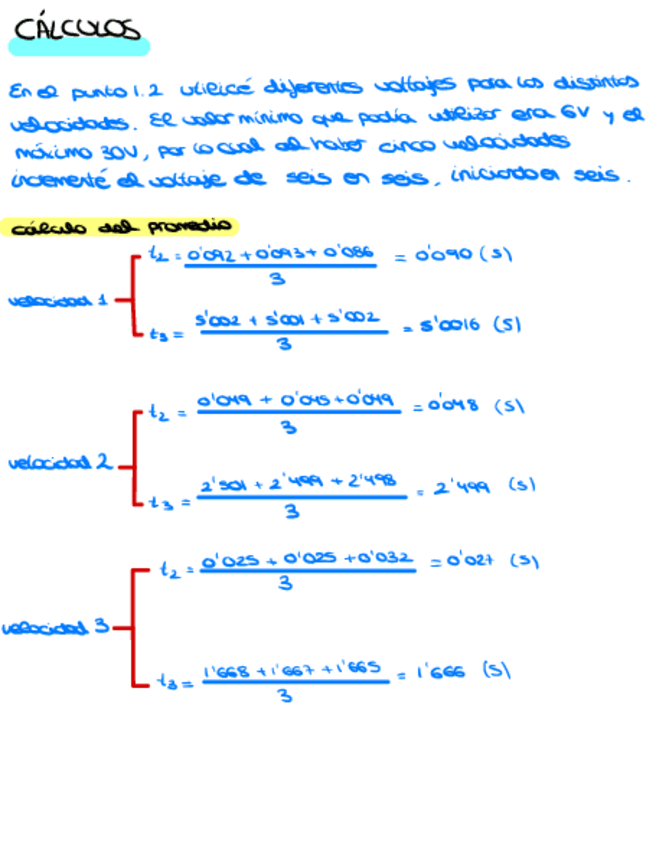 CÁLCULOS
En el punto 1.2 utilicé diferentes voltajes para las distintas
velocidades. El valor mínimo que podía utilizar era 6V y el
máximo 30V, por lo cual al haber cinco velocidades
incrementé el voltaje de seis en seis, iniciando en seis.
cálculo del promedio
velocidad 1
t₂ = (0'092 + 0'093 + 0'086) / 3 = 0'090 (s)
t₃ = (5'002 + 5'001 + 5'002) / 3 = 5'0016 (s)
velocidad 2
t₂ = (0'049 + 0'045 + 0'049) / 3 = 0'048 (s)
t₃ = (2'501 + 2'499 + 2'498) / 3 = 2'499 (s)
velocidad 3
t₂ = (0'025 + 0'025 + 0'032) / 3 = 0'027 (s)
t₃ = (1'668 + 1'667 + 1'665) / 3 = 1'666 (s)